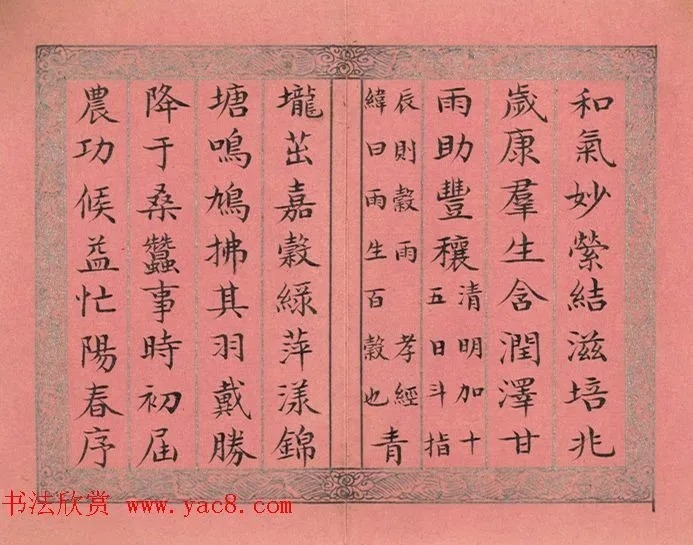 和氣妙縈結滋培兆
歲康羣生含潤澤甘
雨助豐穰
清明加十
五日斗指
辰則穀雨 孝經
緯曰雨生百穀也
青
壠茁嘉穀綠萍漾錦
塘鳴鳩拂其羽戴勝
降于桑蠶事時初屆
農功候益忙陽春序
书法欣赏 www.yac8.com